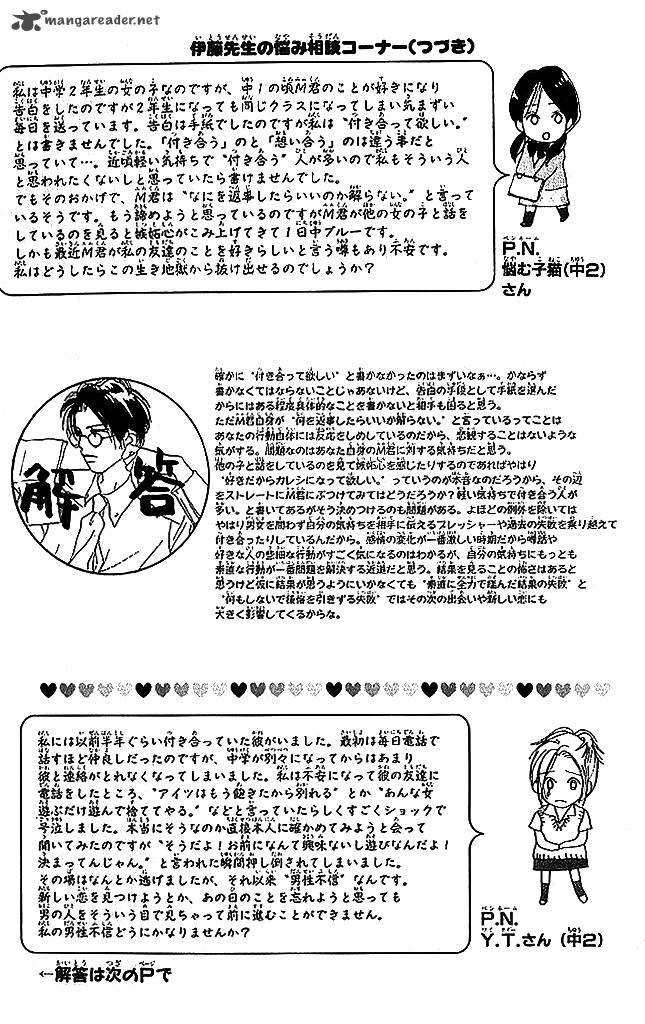 mangareader.net
伊藤先生の悩み相談コーナー(つづき)
私は中学2年生の女の子なのですが、中1の頃M君のことが好きになり
告白をしたのですが2年生になっても同じクラスになってしまい気まずい
毎日を送っています。告白は手紙でしたのですが私は“付き合って欲しい。”
とは書きませんでした。「付き合う」のと「想い合う」のは違う事だと
思っていて…。近頃軽い気持ちで“付き合う”人が多いので私もそういう人
と思われたくないしと思っていたら書けませんでした。
でもそのおかげで、M君は“なにを返事したらいいのか解らない。”と言って
いるそうです。もう諦めようと思っているのですがM君が他の女の子と話を
しているのを見ると嫉妬心がこみ上げてきて1日中ブルーです。
しかも最近M君が私の友達のことを好きらしいと言う噂もあり不安です。
私はどうしたらこの生き地獄から抜け出せるのでしょうか?
P.N.
悩む子猫(中2)
さん
解答
確かに“付き合って欲しい”と書かなかったのはまずいなぁ…。かならず
書かなくてはならないことじゃあないけど、告白の手段として手紙を選んだ
からにはある程度具体的なことを書かないと相手も困ると思う。
ただM君自身が“何を返事したらいいか解らない。”と言っているってことは
あなたの行動自体には反応をしめしているのだから、悲観することはないような
気がする。問題なのはあなた自身のM君に対する気持ちだと思う。
他の子と話をしているのを見て嫉妬心を感じたりするのであればやはり
“好きだからカレシになって欲しい”っていうのが本音なのだろうから、その辺
をストレートにM君にぶつけてみてはどうだろうか?軽い気持ちで付き合う人が
多い。と書いてあるがそう決めつけるのも問題がある。よほどの例外を除いては
やはり男女を問わず自分の気持ちを相手に伝えるプレッシャーや過去の失敗を乗り越えて
付き合ったりしているんだから。感情の変化が一番激しい時期だから噂話や
好きな人の些細な行動がすごく気になるのはわかるが、自分の気持ちにもっとも
素直な行動が一番問題を解決する近道だと思う。結果を見ることの怖さはあると
思うけど仮に結果が思うようにいかなくても“素直に全力で臨んだ結果の失敗”と
“何もしないで後悔を引きずる失敗”ではその次の出会いや新しい恋にも
大きく影響してくるからな。
私には以前半年ぐらい付き合っていた彼がいました。最初は毎日電話で
話すほど仲良しだったのですが、中学が別々になってからはあまり
彼と連絡がとれなくなってしまいました。私は不安になって彼の友達に
電話をしたところ、“アイツはもう飽きたから別れる”とか“あんな女
遊ぶだけ遊んで捨ててやる。”などと言っていたらしくすごくショックで
号泣しました。本当にそうなのか直接本人に確かめてみようと会って
聞いてみたのですが“そうだよ!お前になんて興味ないし遊びなんだよ!
決まってんじゃん。”と言われた瞬間押し倒されてしまいました。
その場はなんとか逃げましたが、それ以来“男性不信”なんです。
新しい恋を見つけようとか、あの日のことを忘れようと思っても
男の人をそういう目で見ちゃって前に進むことができません。
私の男性不信どうにかなりませんか?
P.N.
Y.T.さん(中2)
←解答は次のPで